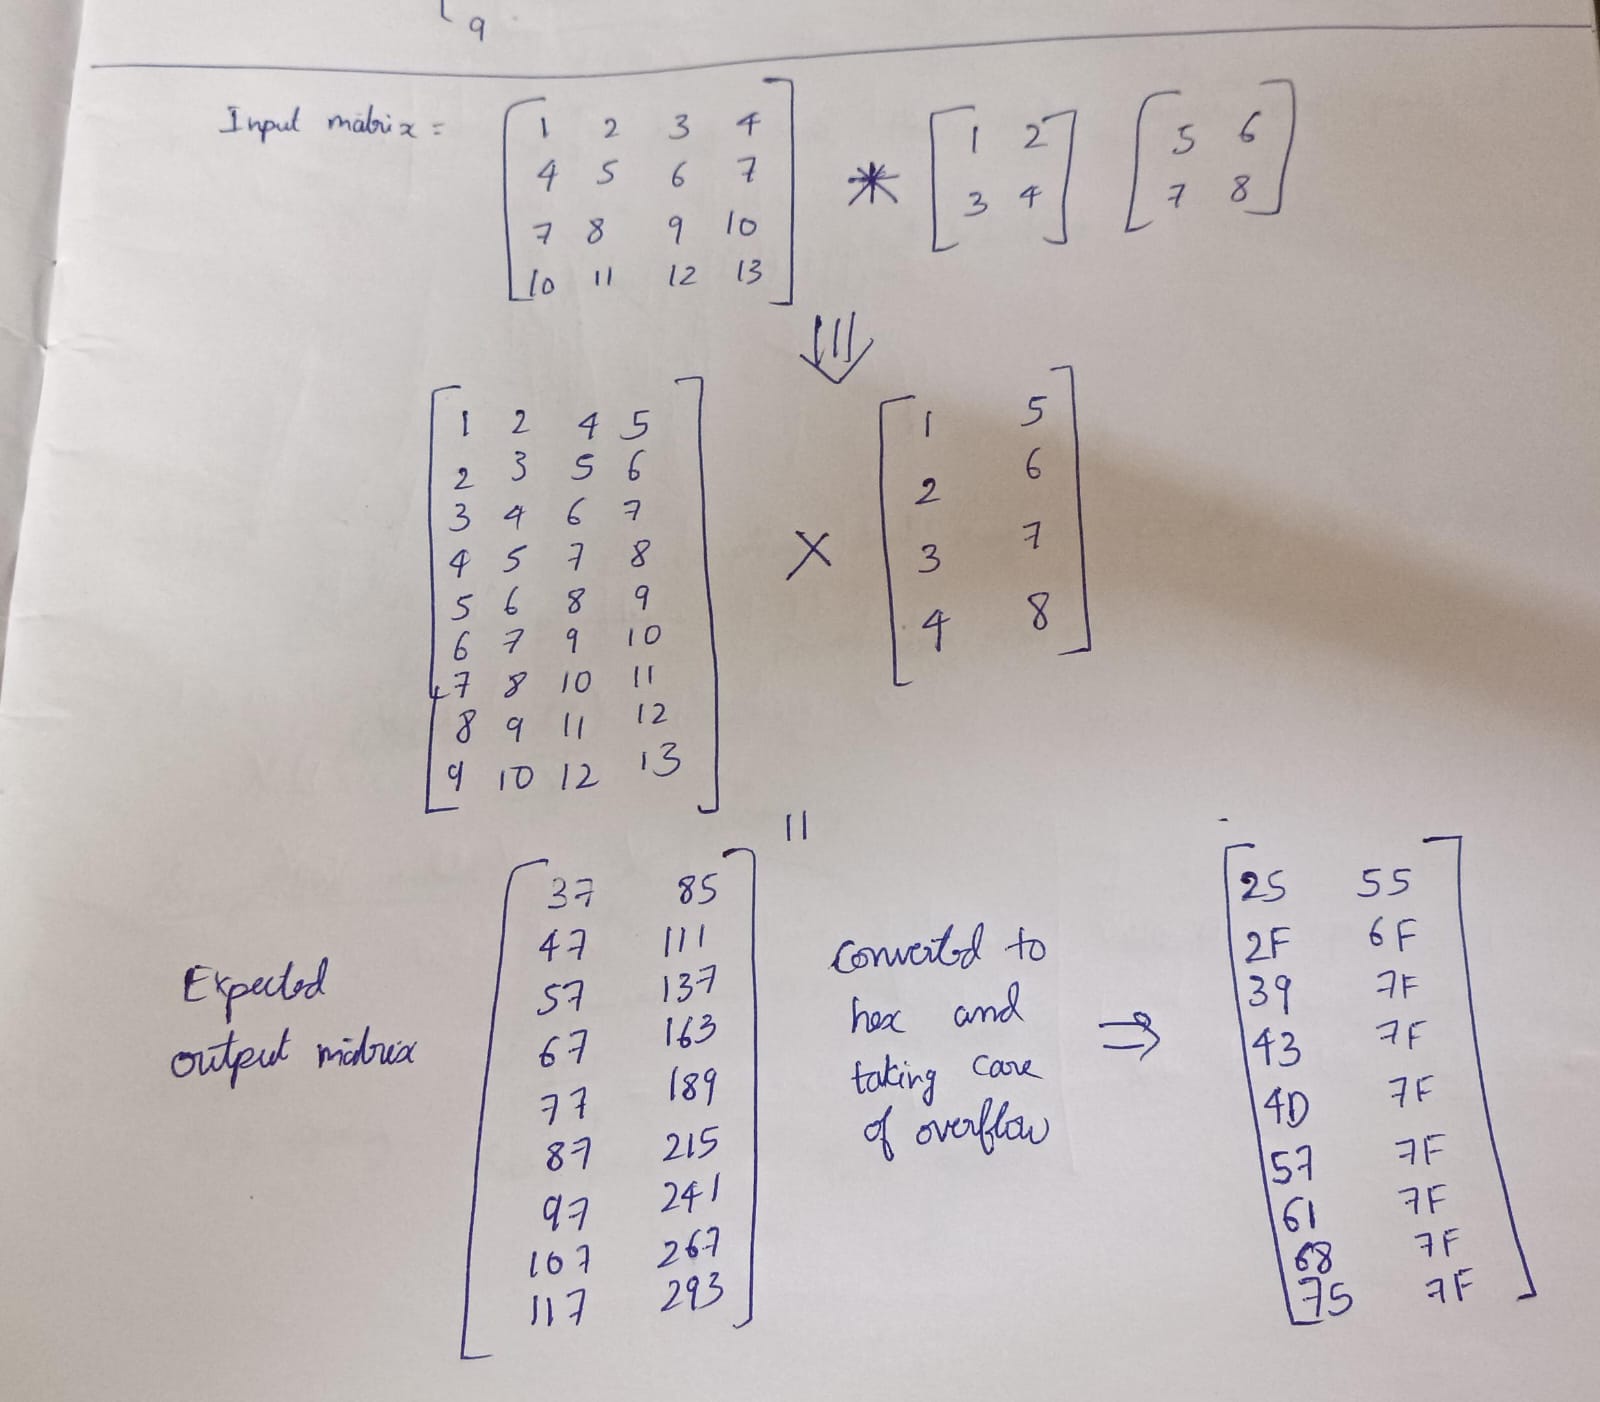 9
Input matrix =
1 2 3 4
4 5 6 7
7 8 9 10
10 11 12 13
*
1 2
3 4
5 6
7 8
1 2 4 5
2 3 5 6
3 4 6 7
4 5 7 8
5 6 8 9
6 7 9 10
7 8 10 11
8 9 11 12
9 10 12 13
×
1 5
2 6
3 7
4 8
||
Expected
output matrix
37 85
47 111
57 137
67 163
77 189
87 215
97 241
107 267
117 293
Converted to
hex and
taking care
of overflow
⇒
25 55
2F 6F
39 7F
43 7F
4D 7F
57 7F
61 7F
68 7F
75 7F